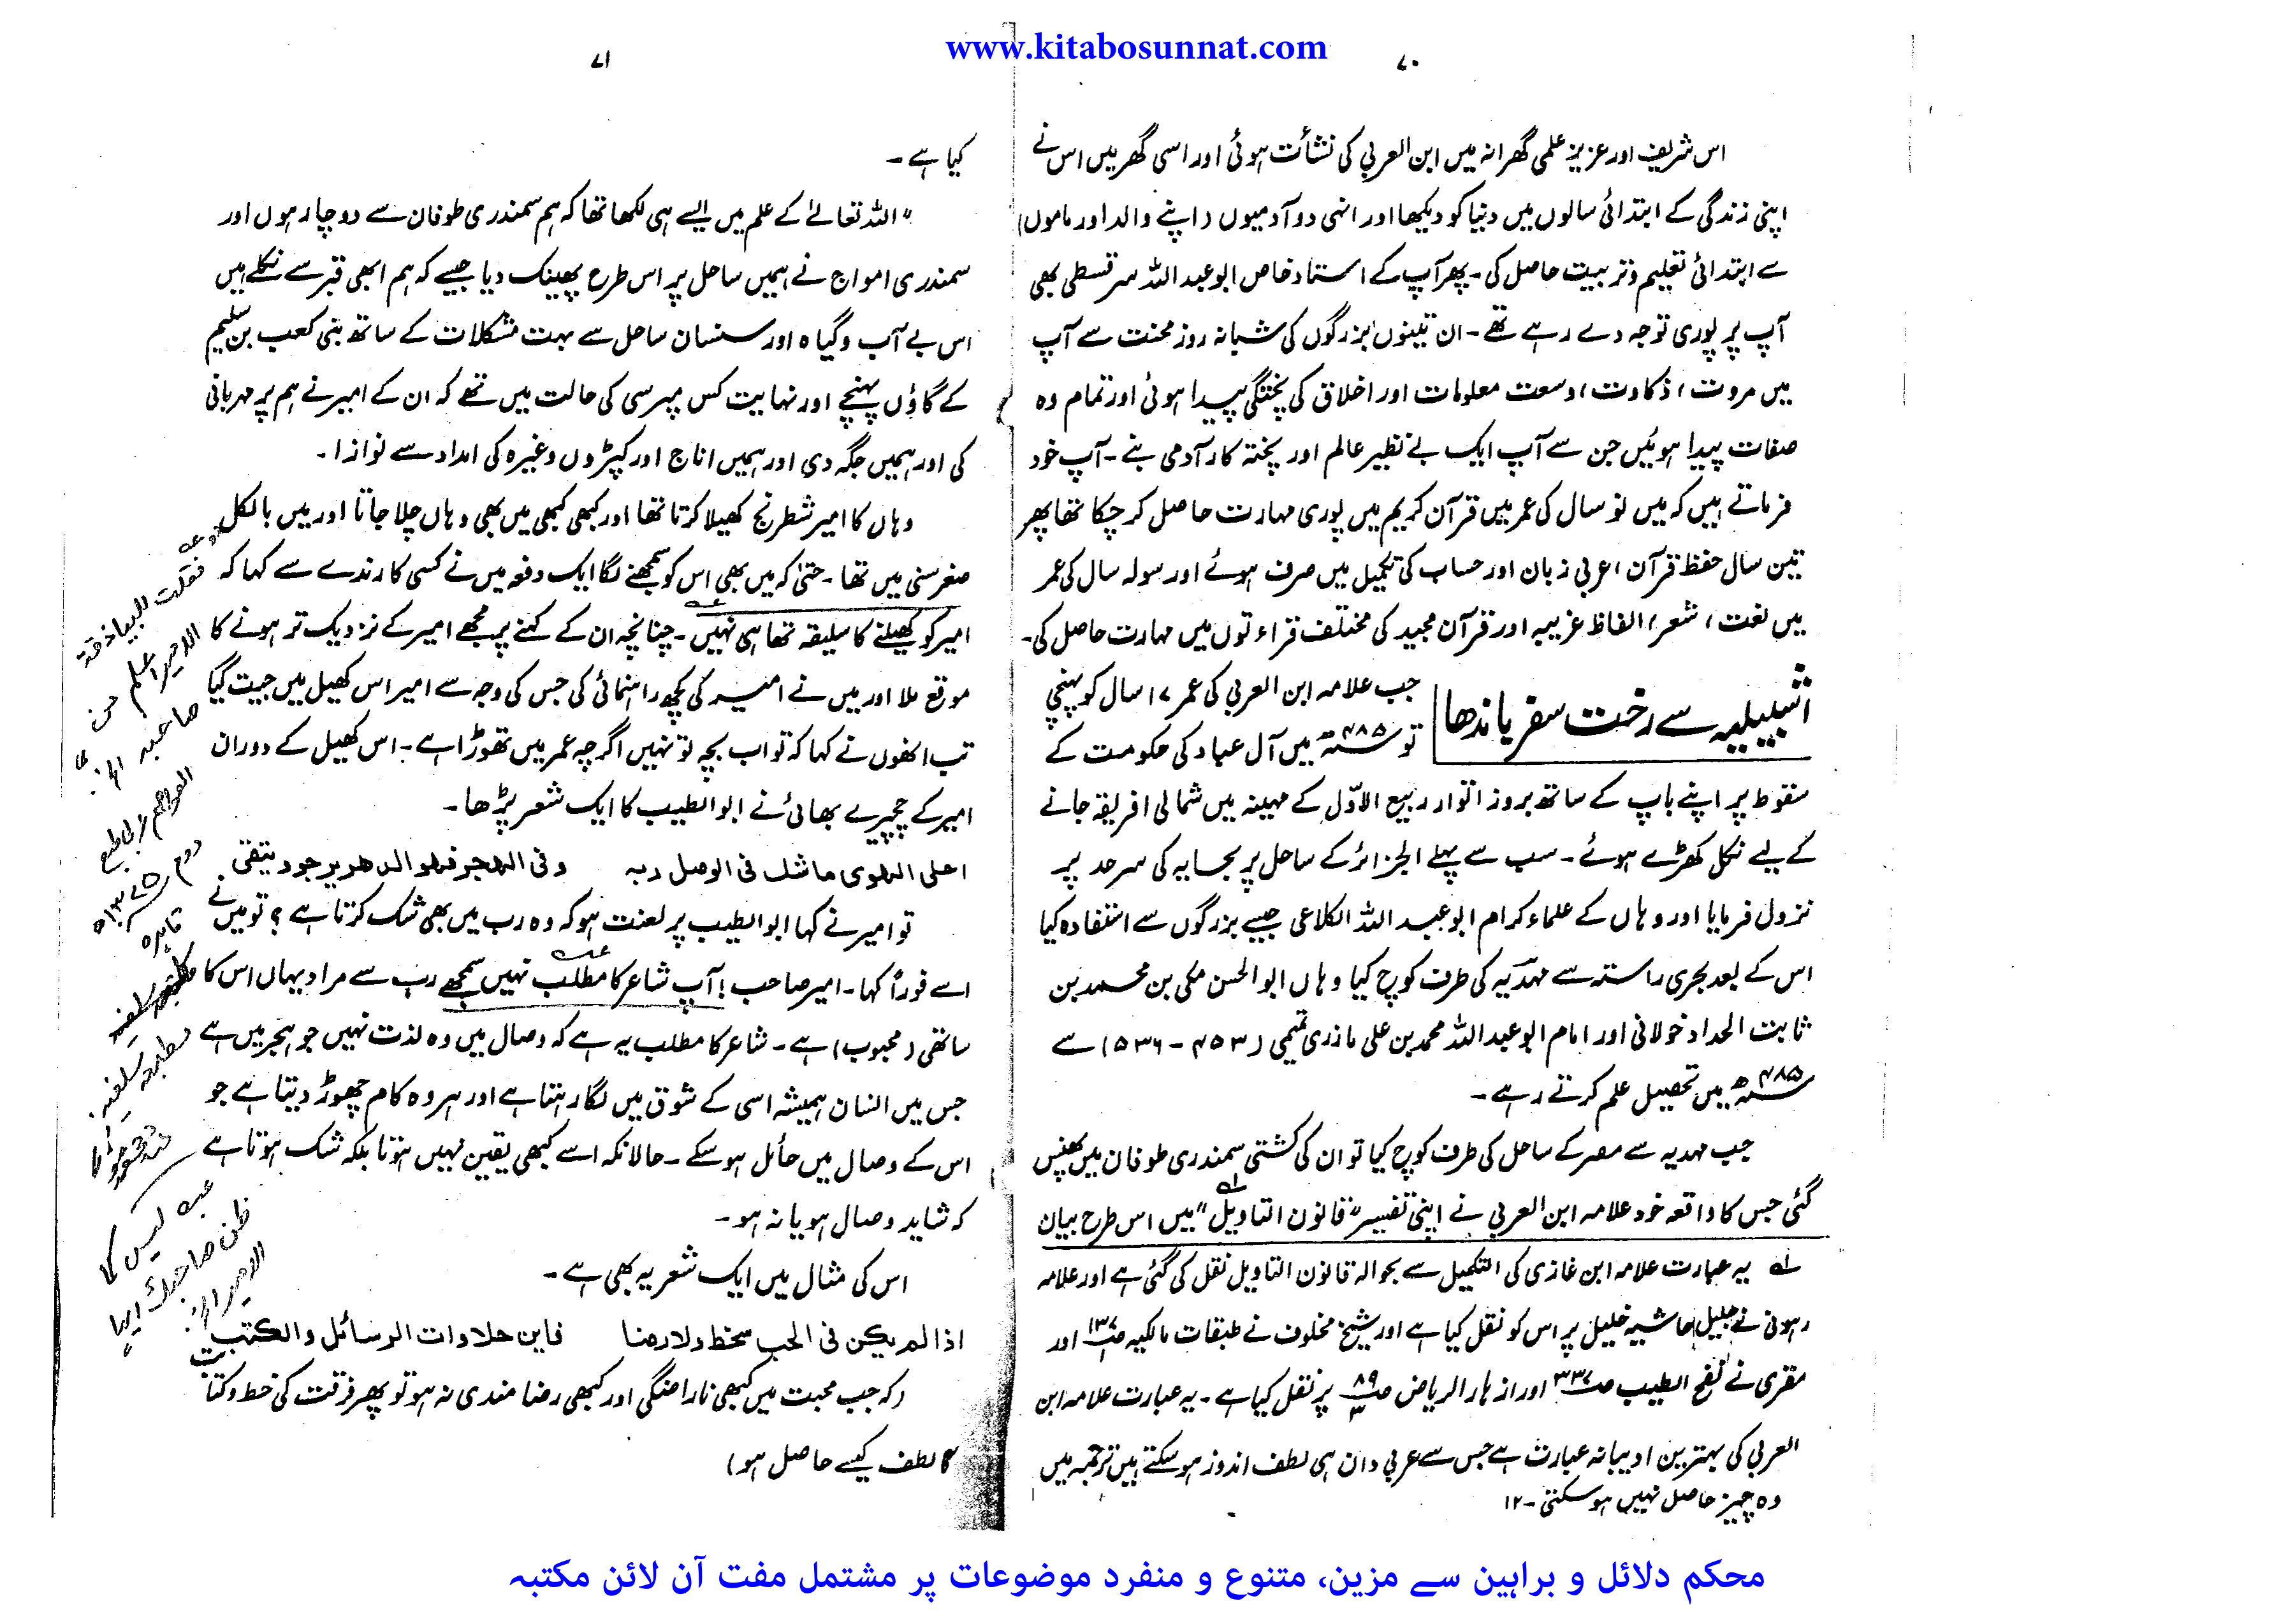 www.kitabosunnat.com
۷۰
اس شریف اور عزیز علمی گھرانہ میں ابن العربی کی نشأت ہوئی اور اسی گھر میں اس نے
اپنی زندگی کے ابتدائی سالوں میں دنیا کو دیکھا اور انہی دو آدمیوں (اپنے والد اور ماموں)
سے ابتدائی تعلیم و تربیت حاصل کی۔ پھر آپ کے استاد خاص ابو عبد اللہ سرقسطی بھی
آپ پر پوری توجہ دے رہے تھے۔ ان تینوں بزرگوں کی شبانہ روز محنت سے آپ
میں مروت، ذکاوت، وسعت معلومات اور اخلاق کی پختگی پیدا ہوئی اور تمام وہ
صفات پیدا ہوئیں جن سے آپ ایک بے نظیر عالم اور پختہ کار آدمی بنے۔ آپ خود
فرماتے ہیں کہ میں نو سال کی عمر میں قرآن کریم میں پوری مہارت حاصل کر چکا تھا پھر
تین سال حفظ قرآن، عربی زبان اور حساب کی تکمیل میں صرف ہوئے اور سولہ سال کی عمر
میں لغت، شعر، الفاظ غریبہ اور قرآن مجید کی مختلف قراءتوں میں مہارت حاصل کی۔
اشبیلیہ سے رخت سفر باندھا
جب علامہ ابن العربی کی عمر ۱۷ سال کو پہنچی
تو ۴۸۵ھ میں آل عباد کی حکومت کے
سقوط پر اپنے باپ کے ساتھ بروز اتوار ربیع الاوّل کے مہینہ میں شمالی افریقہ جانے
کے لیے نکل کھڑے ہوئے۔ سب سے پہلے الجزائر کے ساحل پر بجایہ کی سرحد پر
نزول فرمایا اور وہاں کے علماء کرام ابو عبد اللہ الکلاعی جیسے بزرگوں سے استفادہ کیا
اس کے بعد بحری راستہ سے مہدیہ کی طرف کوچ کیا وہاں ابو الحسن مکی بن محمد بن
ثابت الحداد خولانی اور امام ابو عبد اللہ محمد بن علی مازری تمیمی (۴۵۳ - ۵۳۶) سے
۴۸۵ھ میں تحصیل علم کرتے رہے۔
جب مہدیہ سے مصر کے ساحل کی طرف کوچ کیا تو ان کی کشتی سمندری طوفان میں پھنس
گئی جس کا واقعہ خود علامہ ابن العربی نے اپنی تفسیر "قانون التاویل"؂۱ میں اس طرح بیان
؂۱ یہ عبارت علامہ ابن غازی کی التکمیل سے بحوالہ قانون التاویل نقل کی گئی ہے اور علامہ
رہونی نے جلیل حاشیہ خلیل پر اس کو نقل کیا ہے اور شیخ مخلوف نے طبقات مالکیہ ص۱۳۷ اور
مقری نے نفح الطیب ص۳۳۷ اور ازہار الریاض ص۸۹/۳ پر نقل کیا ہے۔ یہ عبارت علامہ ابن
العربی کی بہترین ادیبانہ عبارت ہے جس سے عربی دان ہی لطف اندوز ہو سکتے ہیں ترجمہ میں
وہ چیز حاصل نہیں ہو سکتی۔ ۱۲
۷۱
کیا ہے۔
"اللہ تعالےٰ کے علم میں ایسے ہی لکھا تھا کہ ہم سمندری طوفان سے دوچار ہوں اور
سمندری امواج نے ہمیں ساحل پر اس طرح پھینک دیا جیسے کہ ہم ابھی قبر سے نکلے ہیں
اس بے آب و گیاہ اور سنسان ساحل سے بہت مشکلات کے ساتھ بنی کعب بن سلیم
کے گاؤں پہنچے اور نہایت کس مپرسی کی حالت میں تھے کہ ان کے امیر نے ہم پر مہربانی
کی اور ہمیں جگہ دی اور ہمیں اناج اور کپڑوں وغیرہ کی امداد سے نوازا۔
وہاں کا امیر شطرنج کھیلا کرتا تھا اور کبھی کبھی میں بھی وہاں چلا جاتا اور میں بالکل
صغر سنی میں تھا۔ حتیٰ کہ میں بھی اس کو سمجھنے لگا ایک دفعہ میں نے کسی کارندے سے کہا کہ
امیر کو کھیلنے کا سلیقہ تھا ہی نہیں۔ چنانچہ ان کے کہنے پر مجھے امیر کے نزدیک تر ہونے کا
موقع ملا اور میں نے امیر کی کچھ راہنمائی کی جس کی وجہ سے امیر اس کھیل میں جیت گیا
تب انھوں نے کہا کہ تو اب بچہ تو نہیں اگرچہ عمر میں تھوڑا ہے۔ اس کھیل کے دوران
امیر کے چچیرے بھائی نے ابو الطیب کا ایک شعر پڑھا۔
احلی الهوی ما شك فی الوصل ربه     وفی الهجر فهو الدهر یرجو ویتقی
تو امیر نے کہا ابو الطیب پر لعنت ہو کہ وہ رب میں بھی شک کرتا ہے؟ تو میں نے
اسے فوراً کہا۔ امیر صاحب! آپ شاعر کا مطلب نہیں سمجھے رب سے مراد یہاں اس کا
ساتھی (محبوب) ہے۔ شاعر کا مطلب یہ ہے کہ وصال میں وہ لذت نہیں جو ہجر میں ہے
جس میں انسان ہمیشہ اسی کے شوق میں لگا رہتا ہے اور ہر وہ کام چھوڑ دیتا ہے جو
اس کے وصال میں حائل ہو سکے۔ حالانکہ اسے کبھی یقین نہیں ہوتا بلکہ شک ہوتا ہے
کہ شاید وصال ہو یا نہ ہو۔
اس کی مثال میں ایک شعر یہ بھی ہے۔
اذا لم یکن فی الحب سخط ولا رضا     فاین حلاوات الرسائل والکتب
(کہ جب محبت میں کبھی ناراضگی اور کبھی رضا مندی نہ ہو تو پھر فرقت کی خط و کتابت
کا لطف کیسے حاصل ہو)
فقلت للبیاذقة
الامیر اعلم من
صاحبه الخ
العواصم
دوم ۱۳۷۵ھ
قاہرہ
مطبعہ سلفیہ
لیس کما
ظن صاحبك ایها
الامیر الخ
محکم دلائل و براہین سے مزین، متنوع و منفرد موضوعات پر مشتمل مفت آن لائن مکتبہ